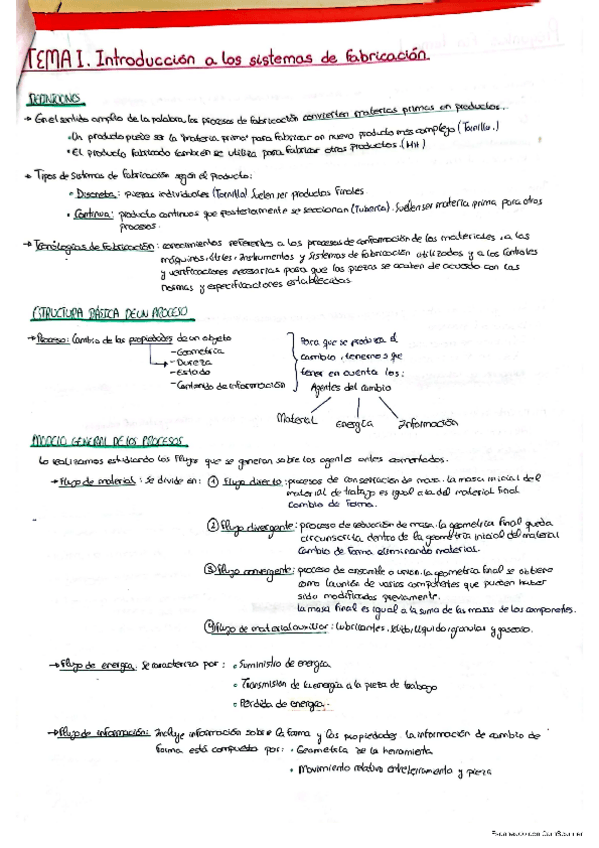 TEMA I. Introducción a los sistemas de fabricación.
DEFINICIONES
→ En el sentido amplio de la palabra, los procesos de fabricación convierten materias primas en productos.
• Un producto puede ser la "materia prima" para fabricar un nuevo producto más complejo (Tornillo.)
• El producto fabricado también se utiliza para fabricar otros productos. (MH)
→ Tipos de Sistemas de Fabricación según el Producto:
• Discreta: piezas individuales (Tornillo) Suelen ser productos Finales
• Continua: producto continuos que posteriormente se seccionan (Tubería). Suelen ser materia prima para otros
procesos.
→ Tecnologías de Fabricación: conocimientos referentes a los procesos de conformación de los materiales, a las
máquinas, útiles, instrumentos y sistemas de fabricación utilizados y a los controles
y verificaciones necesarias para que las piezas se acaben de acuerdo con las
normas y especificaciones establecidas.
ESTRUCTURA BÁSICA DE UN PROCESO
→ Proceso: Cambio de las propiedades de un objeto
- Geometrica
- Dureza
- Estado
- Contenido de información
Para que se produzca el
cambio, tenemos que
tener en cuenta los:
Agentes del cambio
Material Energía Información
MODELO GENERAL DE LOS PROCESOS
Lo realizamos estudiando los Flujos que se generan sobre los agentes antes comentados.
→ Flujo de material: se divide en: ① Flujo directo: procesos de conservación de masa. la masa inicial del
material de trabajo es igual a la del material final
Cambio de Forma.
② Flujo divergente: proceso de reducción de masa. la geometría final queda
circunscrita dentro de la geometría inicial del material
Cambio de Forma eliminando material.
③ Flujo convergente: proceso de ensamble o unión. la geometría final se obtiene
como la unión de varios componentes que pueden haber
sido modificados previamente.
la masa final es igual a la suma de las masas de los componentes.
④ Flujo de material auxiliar: lubricantes, sólido, líquido, granulas y gaseoso.
→ Flujo de energía: Se caracteriza por: • Suministro de energía
• Transmisión de la energía a la pieza de trabajo
• Pérdida de energía.
→ Flujo de información: Incluye información sobre la forma y las propiedades. la información de cambio de
forma está compuesto por: • Geometría de la herramienta
• Movimiento relativo entre herramienta y pieza
Escaneado con CamScanner